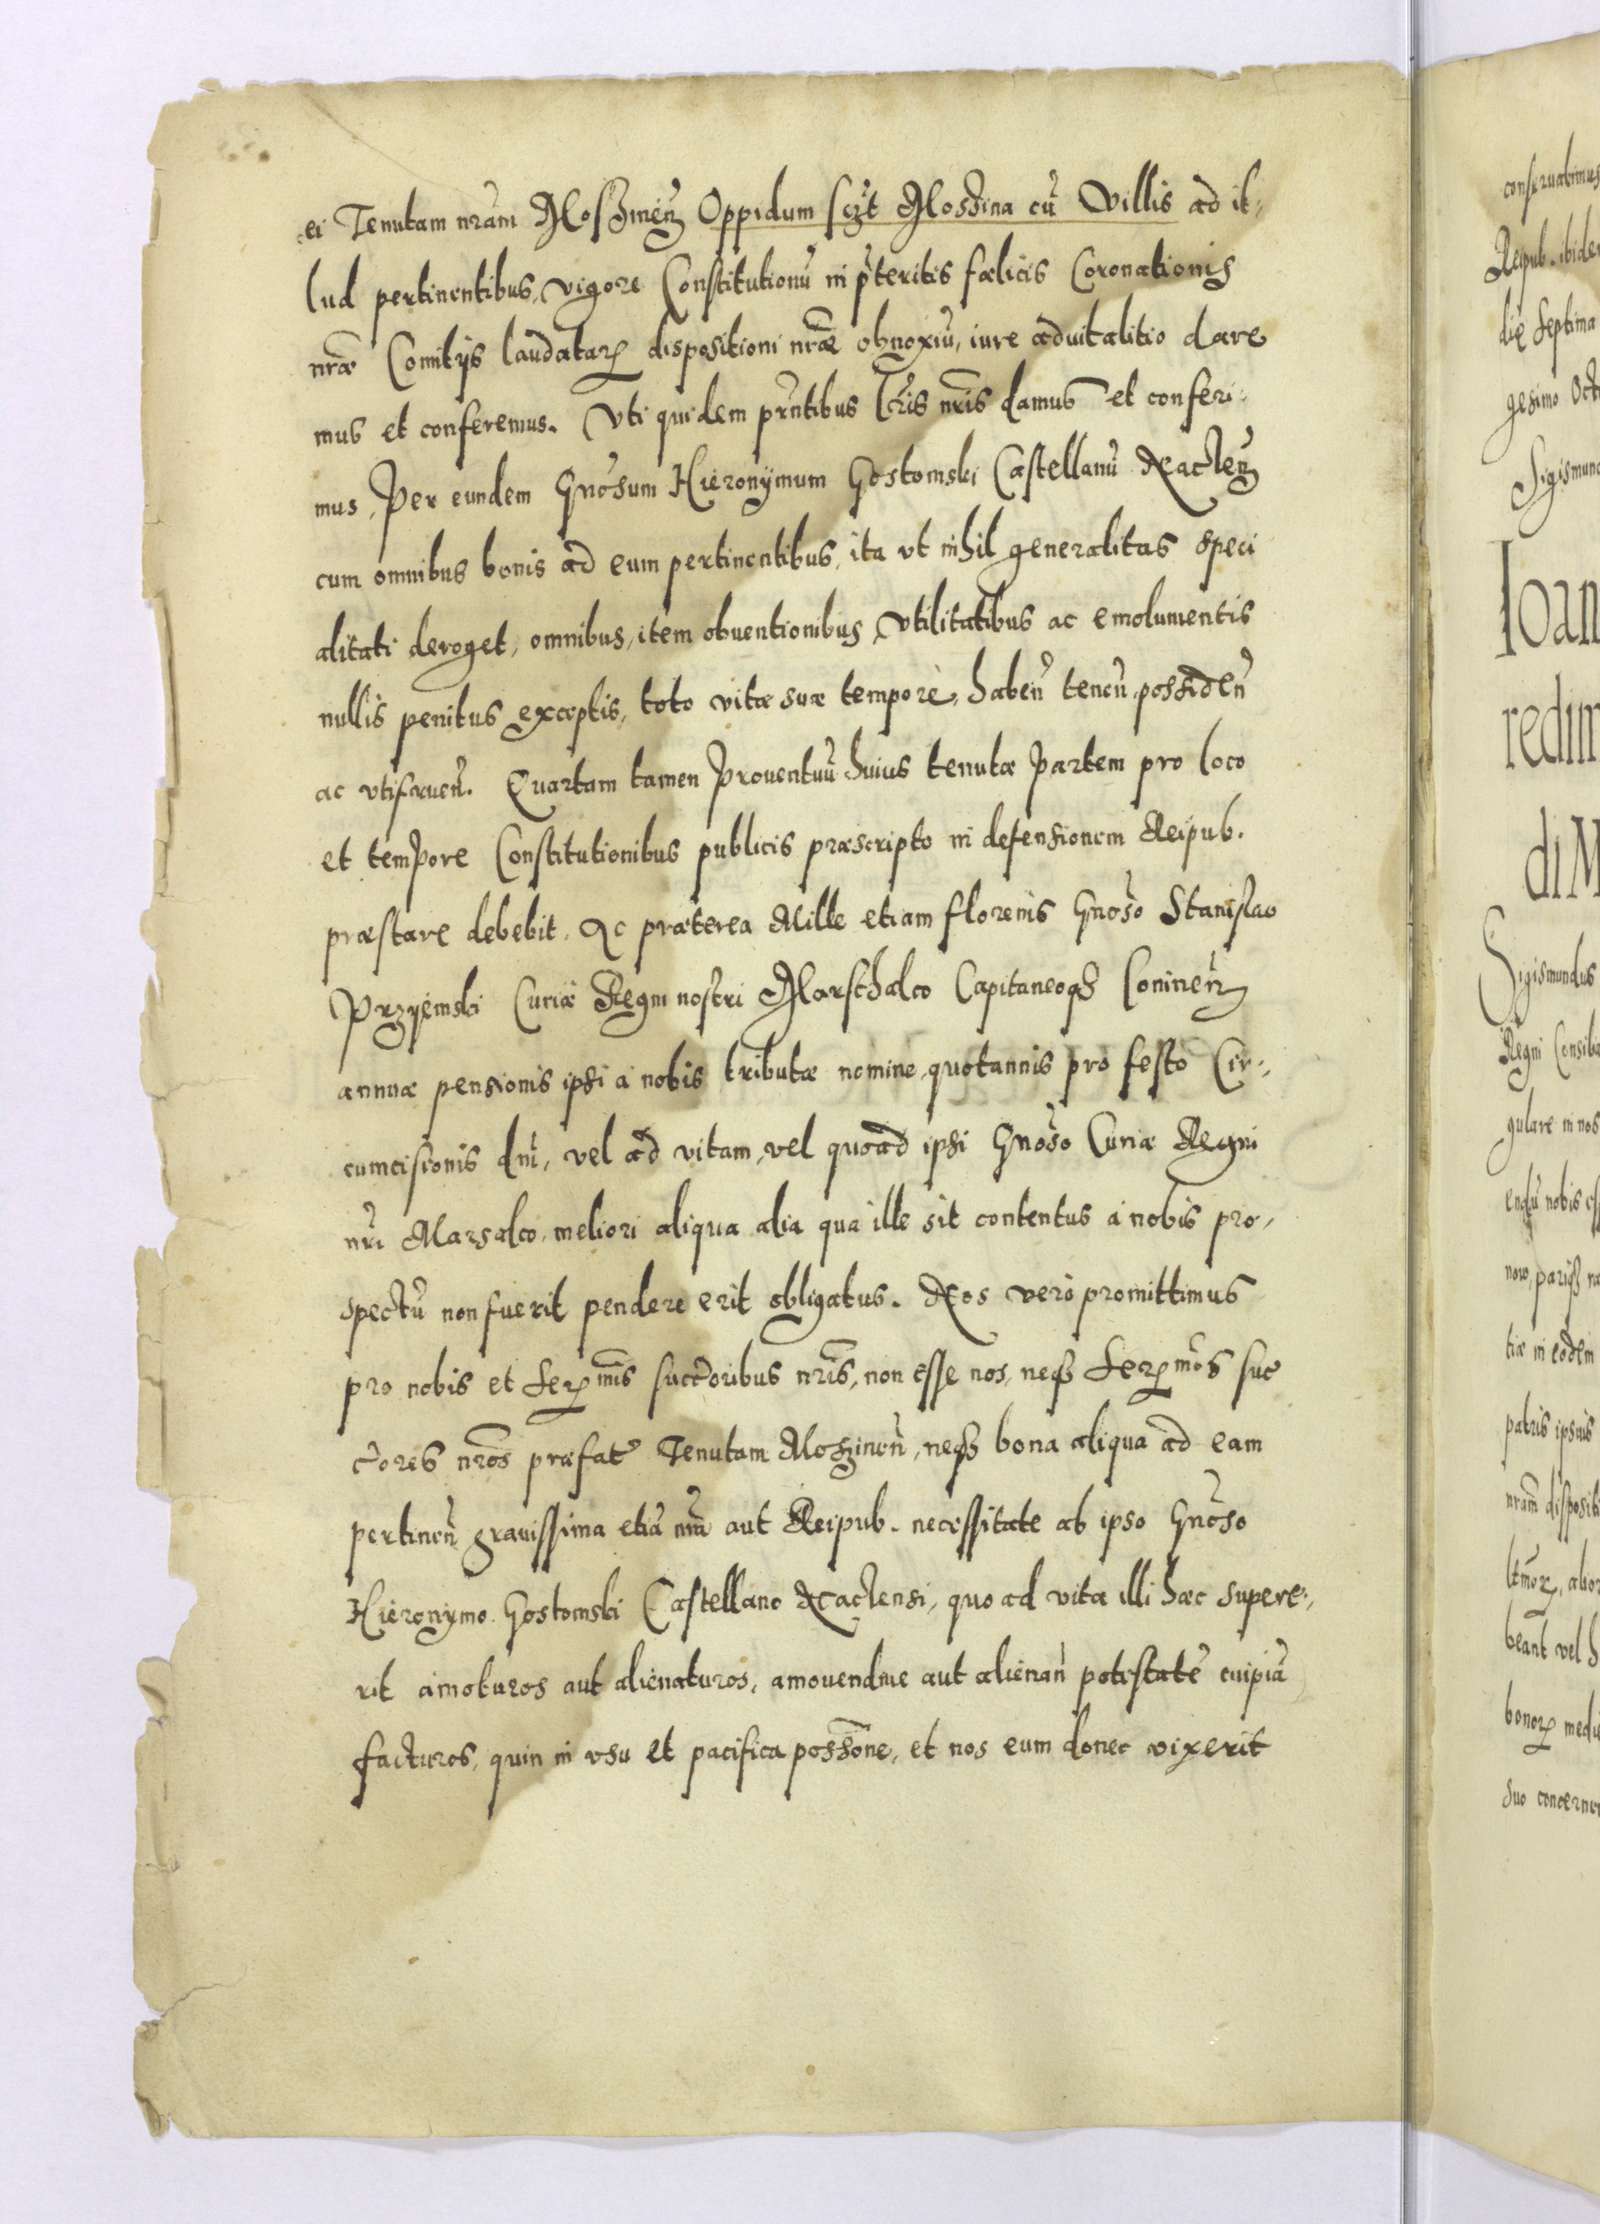 ei Tenutam nram Moszinen Oppidum sczt Moszina cu Villis ad il-
lud pertinentibus, vigore Constitutionu in pteritis fælicis Coronationis
nræ Comitijs laudatar dispositioni nræ obnoxiu, iure aduitalitio dare
mus et conferemus. Vti quidem prntibus lris nris damus et conferi-
mus, Per eundem Gnosum Hieronÿmum Gostomski Castellanu Nacten
cum omnibus bonis ad eum pertinentibus, ita vt nihil generalitas speci
alitati deroget, omnibus, item obuentionibus, vtilitatibus ac emolumentis
nullis penitus exceptis, toto vitæ suæ tempore, haben tenen possiden
ac vtifruen. Quartam tamen Prouentuu huius tenutæ Partem pro loco
et tempore Constitutionibus publicis præscripto in defensionem Reipub.
præstare debebit. Ac præterea Mille etiam florenis Gnoso Stanislao
Przyiemski Curiæ Regni nostri Marschalco Capitaneoq Coninen
annuæ pensionis ipsi a nobis tributæ nomine, quotannis pro festo Cir-
cumcisionis dni, vel ad vitam, vel quoad ipsi Gnoso Curiæ Regni
nri Marsalco, meliori aliqua alia qua ille sit contentus a nobis pro-
spectu non fuerit pendere erit obligatus. Nos vero promittimus
pro nobis et Sermis succoribus nris, non esse nos, neq Sermos suc
cores nros præfat Tenutam Moszinen, neq bona aliqua ad eam
pertinen grauissima etia nra aut Reipub. necessitate ab ipso Gnoso
Hieronymo Gostomski Castellano Nactensi, quo ad vita illi hæc supere-
rit amoturos aut alienaturos, amouendiue aut alienan potestate cuipia
facturos, quin in vsu et pacifica possone, et nos eum donec vixerit
conseruabimus
Reipub. ibidem
die Septima
gesimo Octa
Sigismund
Ioan
redim
di M
Sigismundus
Regni Consilia
gulare in nos
endu nobis ess
patris ipsius
nram dispositi
beant vel h
bonor medie
suo concernen